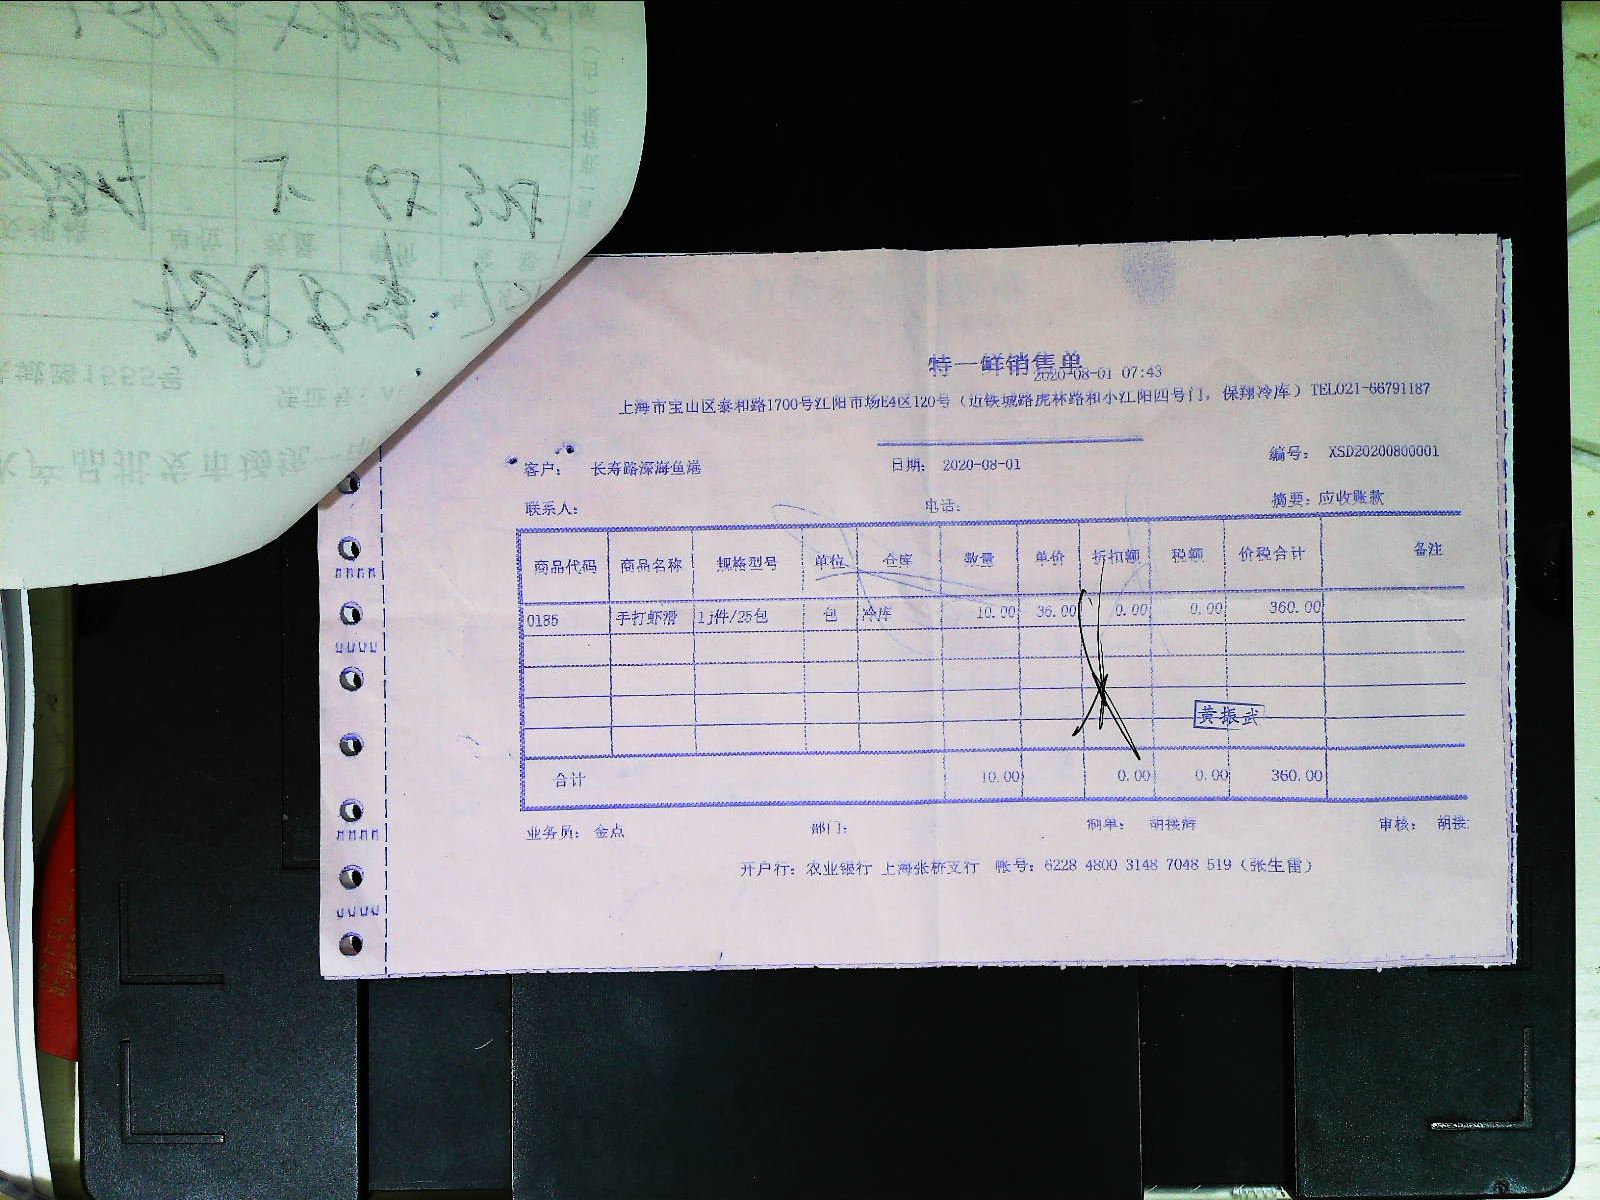 特一鲜销售单
2020-08-01 07:43
上海市宝山区泰和路1700号江阳市场E4区120号（近铁城路虎林路和小江阳四号门，保翔冷库）TEL021-66791187
客户： 长寿路深海鱼港 日期： 2020-08-01 编号： XSD20200800001
联系人： 电话： 摘要：应收账款
商品代码 商品名称 规格型号 单位 仓库 数量 单价 折扣额 税额 价税合计 备注
0185 手打虾滑 1j件/25包 包 冷库 10.00 36.00 0.00 0.00 360.00
黄振武
合计 10.00 0.00 0.00 360.00
业务员： 金点 部门： 制单： 胡接辉 审核： 胡接
开户行：农业银行 上海张桥支行 帐号：6228 4800 3148 7048 519（张生雷）